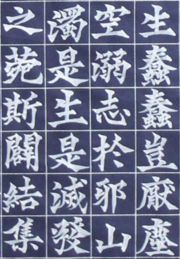 生蠢蠢豈厭塵
空溺志於邪山
濁是生是滅發
之菀斯闢結集